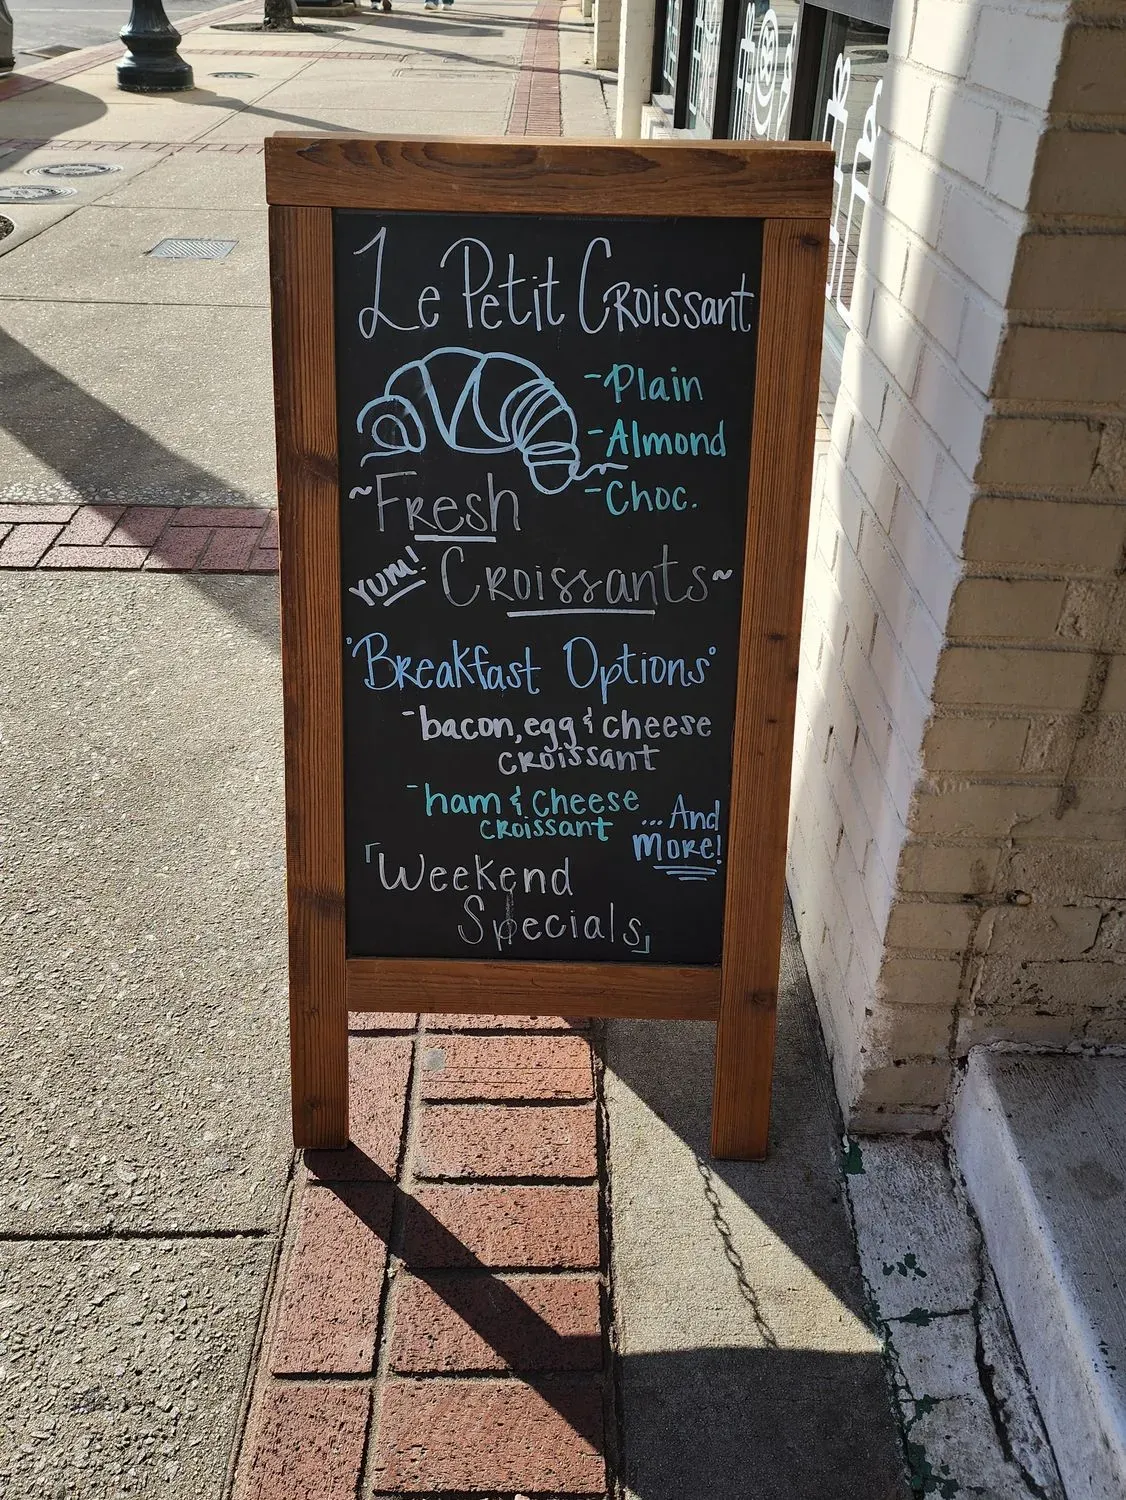 Le Petit Croissant
-Plain
-Almond
-Choc.
~Fresh
Yum! Croissants~
"Breakfast Options"
-bacon, egg & cheese
croissant
-ham & cheese
croissant
...And
More!
「Weekend
Specials」